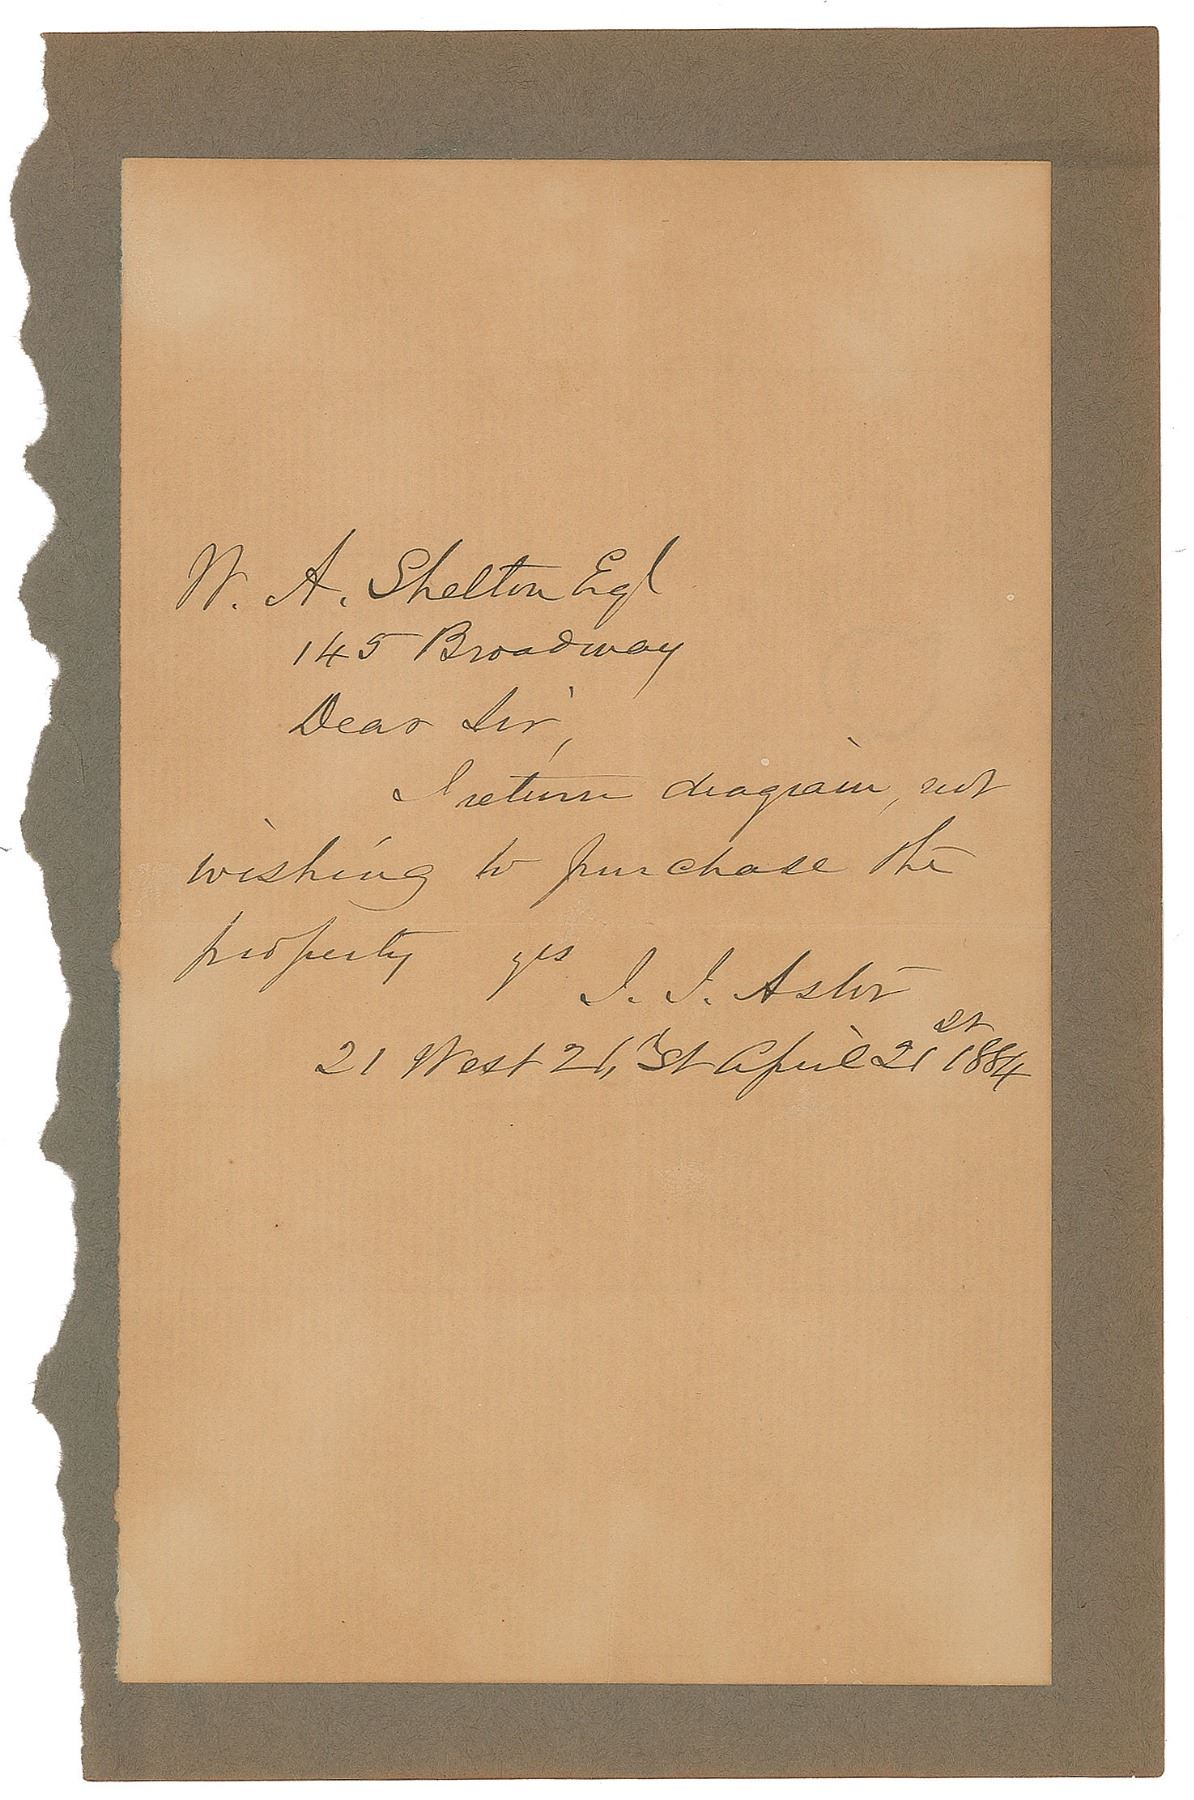 W. A. Shelton Esq
145 Broadway
Dear Sir,
I return diagram, not
wishing to purchase the
property yrs
J. J. Astor
21 West 26th St April 21st 1884